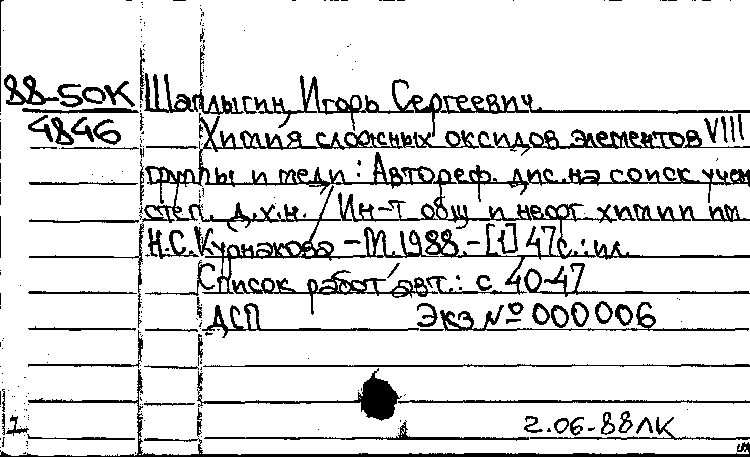 88-50К Шаплыгин, Игорь Сергеевич.
4846 Химия сложных оксидов элементов VIII
группы и меди : Автореф. дис. на соиск учен
степ. д.х.н. / Ин-т общ и неорг химии им
Н.С. Курнакова - М. 1988. - [1] 47с. : ил.
Список работ авт.: с. 40-47
ДСП Экз № 000006
1 2.06-88ЛК